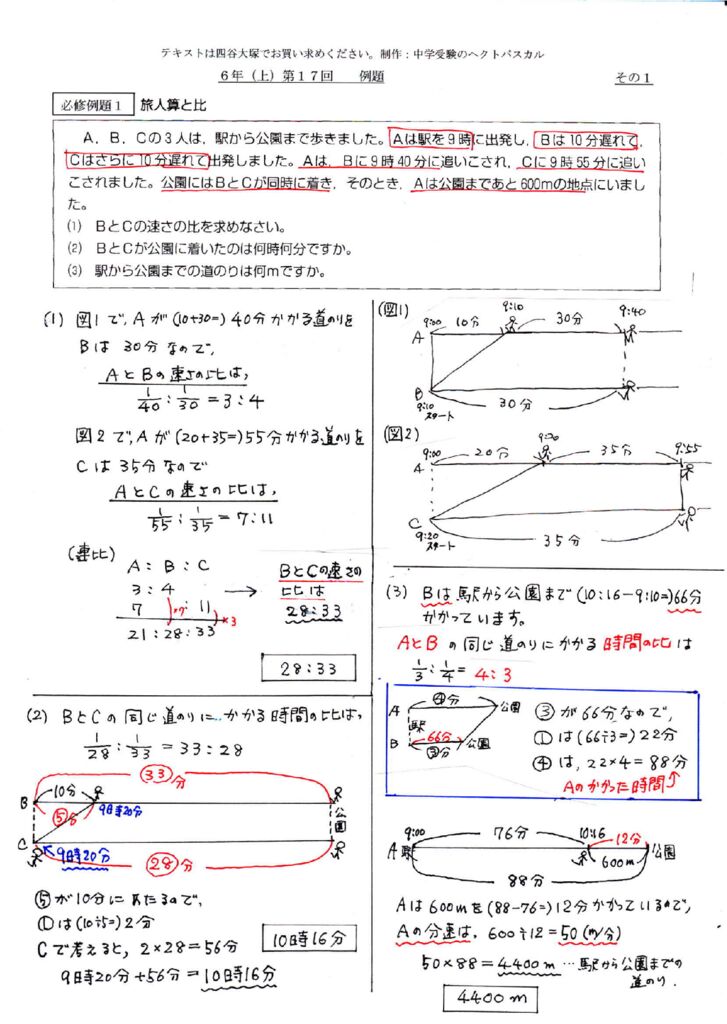 テキストは四谷大塚でお買い求めください。制作：中学受験のヘクトパスカル
６年（上）第１７回　例題
その１
必修例題１　旅人算と比
Ａ，Ｂ，Ｃの３人は，駅から公園まで歩きました。Ａは駅を９時に出発し，Ｂは10分遅れて，
Ｃはさらに10分遅れて出発しました。Ａは，Ｂに９時40分に追いこされ，Ｃに９時55分に追い
こされました。公園にはＢとＣが同時に着き，そのとき，Ａは公園まであと600ｍの地点にいまし
た。
(1)　ＢとＣの速さの比を求めなさい。
(2)　ＢとＣが公園に着いたのは何時何分ですか。
(3)　駅から公園までの道のりは何ｍですか。
(1) 図1で, Aが(10+30=) 40分かかる道のりを
Bは 30分なので,
AとBの速さの比は,
1/40 : 1/30 = 3 : 4
図2で, Aが(20+35=) 55分かかる道のりを
Cは35分なので
AとCの速さの比は,
1/55 : 1/35 = 7 : 11
(連比)
A : B : C
3 : 4
7 : 11
×7
×3
21 : 28 : 33
→ BとCの速さの
比は
28 : 33
28 : 33
(図1)
9:00 10分 9:10 30分 9:40
A
B
9:10
スタート
30分
(図2)
9:00 20分 9:20 35分 9:55
A
C
9:20
スタート
35分
(2) BとCの同じ道のりにかかる時間の比は,
1/28 : 1/33 = 33 : 28
㉝分
10分
B
⑤分
9時20分
公園
C
9時20分
㉘分
⑤が10分にあたるので,
①は(10÷5=) 2分
Cで考えると, 2×28=56分
9時20分+56分=10時16分
10時16分
(3) Bは駅から公園まで(10:16-9:10=)66分
かかっています。
AとBの同じ道のりにかかる時間の比は
1/3 : 1/4 = 4 : 3
④分
A
公園
駅
66分
B
公園
③分
③が66分なので,
①は(66÷3=)22分
④は, 22×4=88分
Aのかかった時間
9:00 76分 10:16 12分
A駅
600m
公園
88分
Aは600mを(88-76=)12分かかっているので,
Aの分速は, 600÷12=50(m/分)
50×88=4400m…駅から公園までの
道のり.
4400m